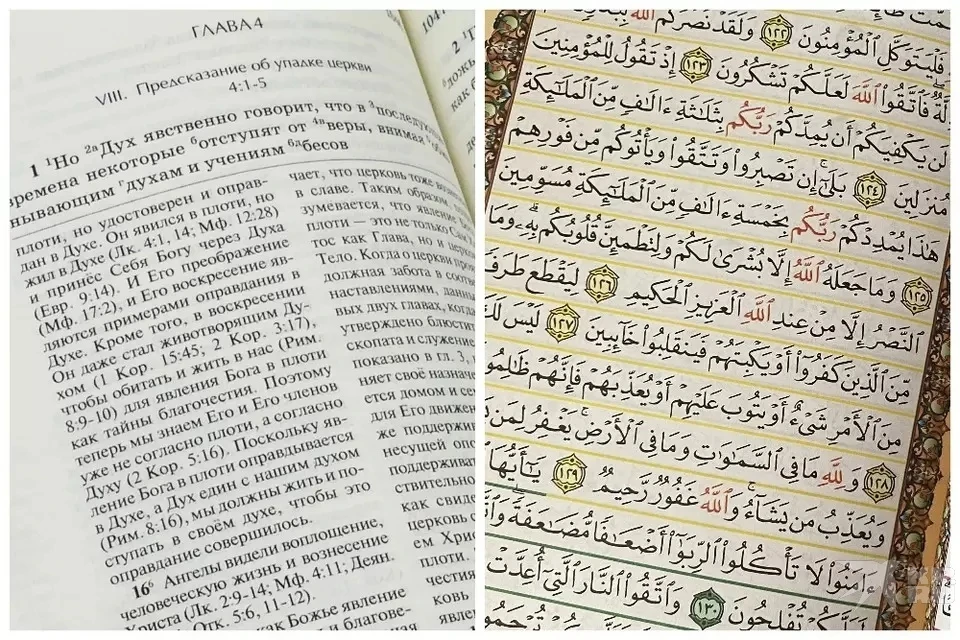 ГЛАВА 4
VIII. Предсказание об упадке церкви
4:1-5
1 ¹Но ²ᵃДух явственно говорит, что в ³последую
времена некоторые ᵇотступят от ⁴ᵃверы, внимая
ывающим ᵍдухам и учениям ᵇᵈбесов
плоти, но удостоверен и оправ-
дан в Духе. Он явился в плоти, но
жил в Духе (Лк. 4:1, 14; Мф. 12:28)
и принёс Себя Богу через Духа
(Евр. 9:14). И Его преображение
(Мф. 17:2), и Его воскресение яв-
ляются примерами оправдания в
Духе. Кроме того, в воскресении
Он даже стал животворящим Ду-
хом (1 Кор. 15:45; 2 Кор. 3:17),
чтобы обитать и жить в нас (Рим.
8:9-10) для явления Бога в плоти
как тайны благочестия. Поэтому
теперь мы знаем Его и Его членов
уже не согласно плоти, а согласно
Духу (2 Кор. 5:16). Поскольку яв-
ление Бога в плоти оправдывается
в Духе, а Дух един с нашим духом
(Рим. 8:16), мы должны жить и по-
ступать в своём духе, чтобы это
оправдание совершилось.
16⁶ Ангелы видели воплощение,
человеческую жизнь и вознесение
Христа (Лк. 2:9-14; Мф. 4:11; Деян.
Отк. 5:6, 11-12).
как Божье явление
и благове-
чает, что церковь тоже
в славе. Таким образом,
зумевается, что явление
плоти — это не только
тос как Глава, но и церковь
Тело. Когда о церкви
должная забота в соотв
наставлениями, данны
вых двух главах, когда
утверждено блюстит
скопата и служение
показано в гл. 3,
няет своё назначе
ется домом и се
для Его движен
же поддержи
несущей опо
поддерживат
ствительно
как свиде
церковь
ем Хрис
плоти.
честия
ковь
فَلْيَتَوَكَّلِ الْمُؤْمِنُونَ ١٢٢ وَلَقَدْ نَصَرَكُمُ اللَّهُ بِبَدْرٍ
فَاتَّقُوا اللَّهَ لَعَلَّكُمْ تَشْكُرُونَ ١٢٣ إِذْ تَقُولُ لِلْمُؤْمِنِينَ
لَن يَكْفِيَكُمْ أَن يُمِدَّكُمْ رَبُّكُم بِثَلَٰثَةِ ءَالَٰفٍ مِّنَ الْمَلَٰٓئِكَةِ
مُنزَلِينَ ١٢٤ بَلَىٰٓ إِن تَصْبِرُوا وَتَتَّقُوا وَيَأْتُوكُم مِّن فَوْرِهِمْ
هَٰذَا يُمْدِدْكُمْ رَبُّكُم بِخَمْسَةِ ءَالَٰفٍ مِّنَ الْمَلَٰٓئِكَةِ مُسَوِّمِينَ
١٢٥ وَمَا جَعَلَهُ اللَّهُ إِلَّا بُشْرَىٰ لَكُمْ وَلِتَطْمَئِنَّ قُلُوبُكُم بِهِۦ وَمَا
النَّصْرُ إِلَّا مِنْ عِندِ اللَّهِ الْعَزِيزِ الْحَكِيمِ ١٢٦ لِيَقْطَعَ طَرَفًا
مِّنَ الَّذِينَ كَفَرُوٓا أَوْ يَكْبِتَهُمْ فَيَنقَلِبُوا خَآئِبِينَ ١٢٧ لَيْسَ لَكَ
مِنَ الْأَمْرِ شَىْءٌ أَوْ يَتُوبَ عَلَيْهِمْ أَوْ يُعَذِّبَهُمْ فَإِنَّهُمْ ظَٰلِمُو
١٢٨ وَلِلَّهِ مَا فِى السَّمَٰوَٰتِ وَمَا فِى الْأَرْضِ يَغْفِرُ لِمَن
وَيُعَذِّبُ مَن يَشَآءُ وَاللَّهُ غَفُورٌ رَّحِيمٌ ١٢٩ يَٰٓأَيُّهَا
ءَامَنُوا لَا تَأْكُلُوا الرِّبَوٰٓا أَضْعَٰفًا مُّضَٰعَفَةً وَاتَّقُوا
تُفْلِحُونَ ١٣٠ وَاتَّقُوا النَّارَ الَّتِىٓ أُعِدَّتْ
تُرْحَمُو